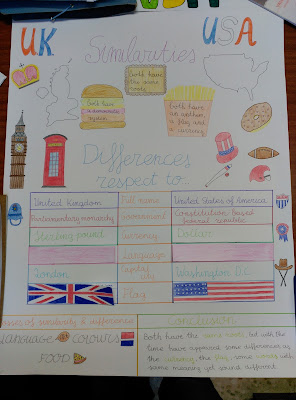 U.K.
USA
Similarities
Both have
the same
roots
Both have
a democratic
system
Both have
an anthem,
a flag and
a currency
Differences
respect to...
United Kingdom Full name United States of America
Parliamentary monarchy Government Constitution-based
federal republic
Sterling pound Currency Dollar
Language
London Capital
city Washington D.C.
Flag
of similarity & difference
Language Colours
FOOD
Conclusion
Both have the same roots, but with the
time have appeared some differences as
the currency, the flag, some words with
same meaning yet sound different.